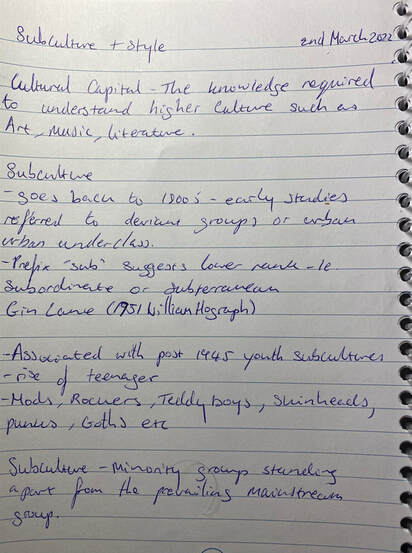 Subculture + Style 2nd March 2022
Cultural Capital - The knowledge required
to understand higher culture such as
Art, Music, literature.
Subculture
- goes back to 1800s - early studies
referred to deviant groups or urban
urban underclass.
- Prefix "sub" suggests lower rank - ie
Subordinate or subterranean
Gin Lane (1951 William Hograph)
- Associated with post 1945 youth subcultures
- rise of teenager
- Mods, Rockers, Teddy boys, Skinheads,
punks, Goths etc
Subculture - Minority group standing
apart from the prevailing mainstream
group.